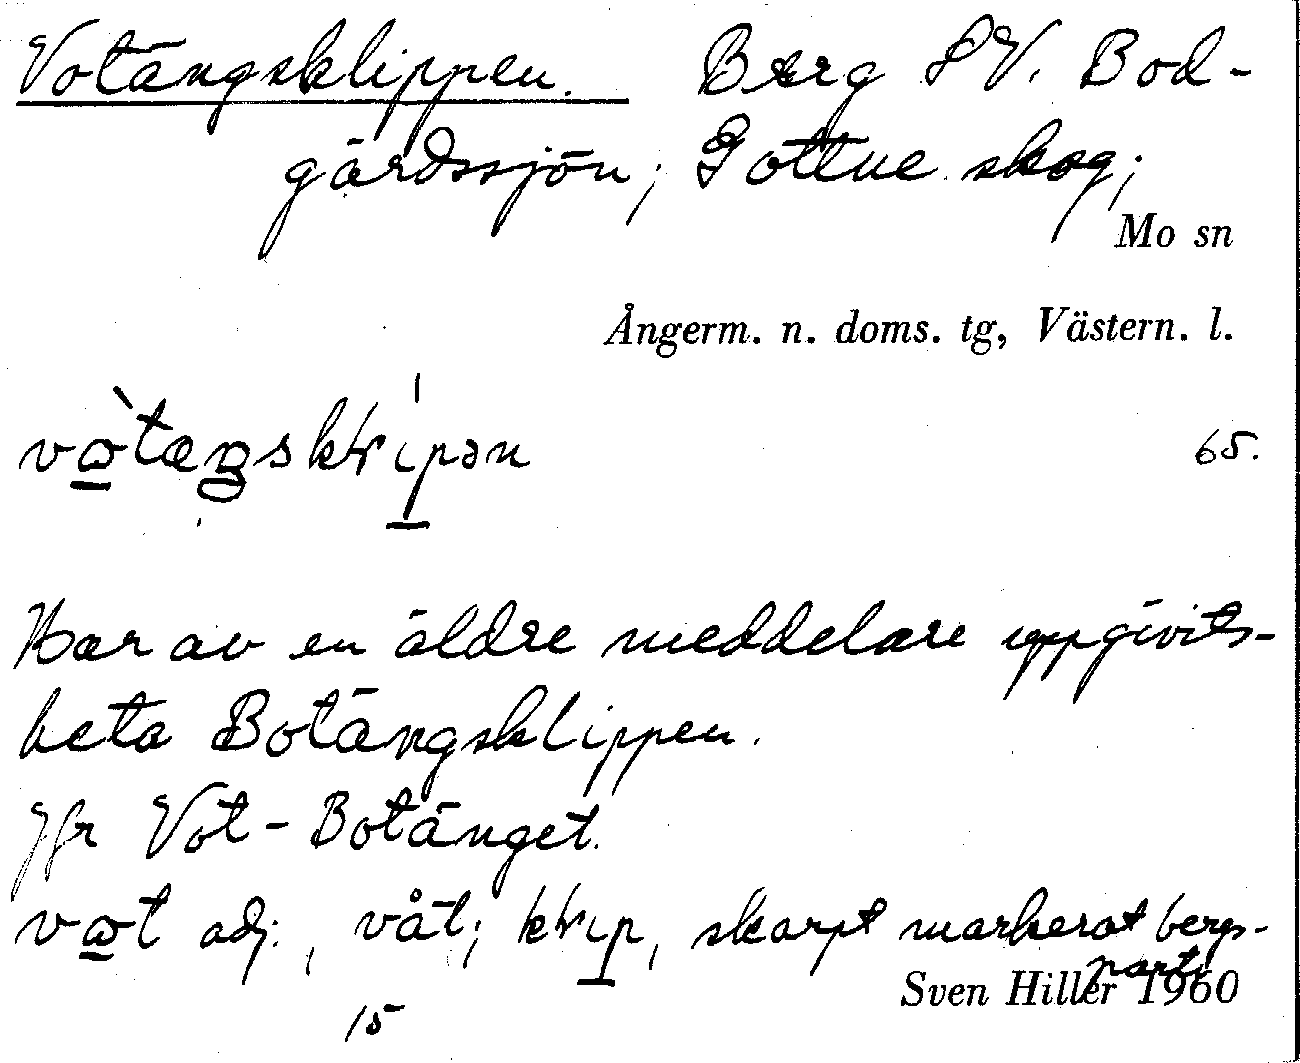 Votängsklippen. Berg SV. Bod-
gärdssjön; Gottne skog;
Mo sn
Ångerm. n. doms. tg, Västern. l.
65.
Har av en äldre meddelare uppgivits
heta Botängsklippen.
Jfr Vot- Botänget.
adj., våt; skarpt markerat bergs-
parti
Sven Hiller 1960
15